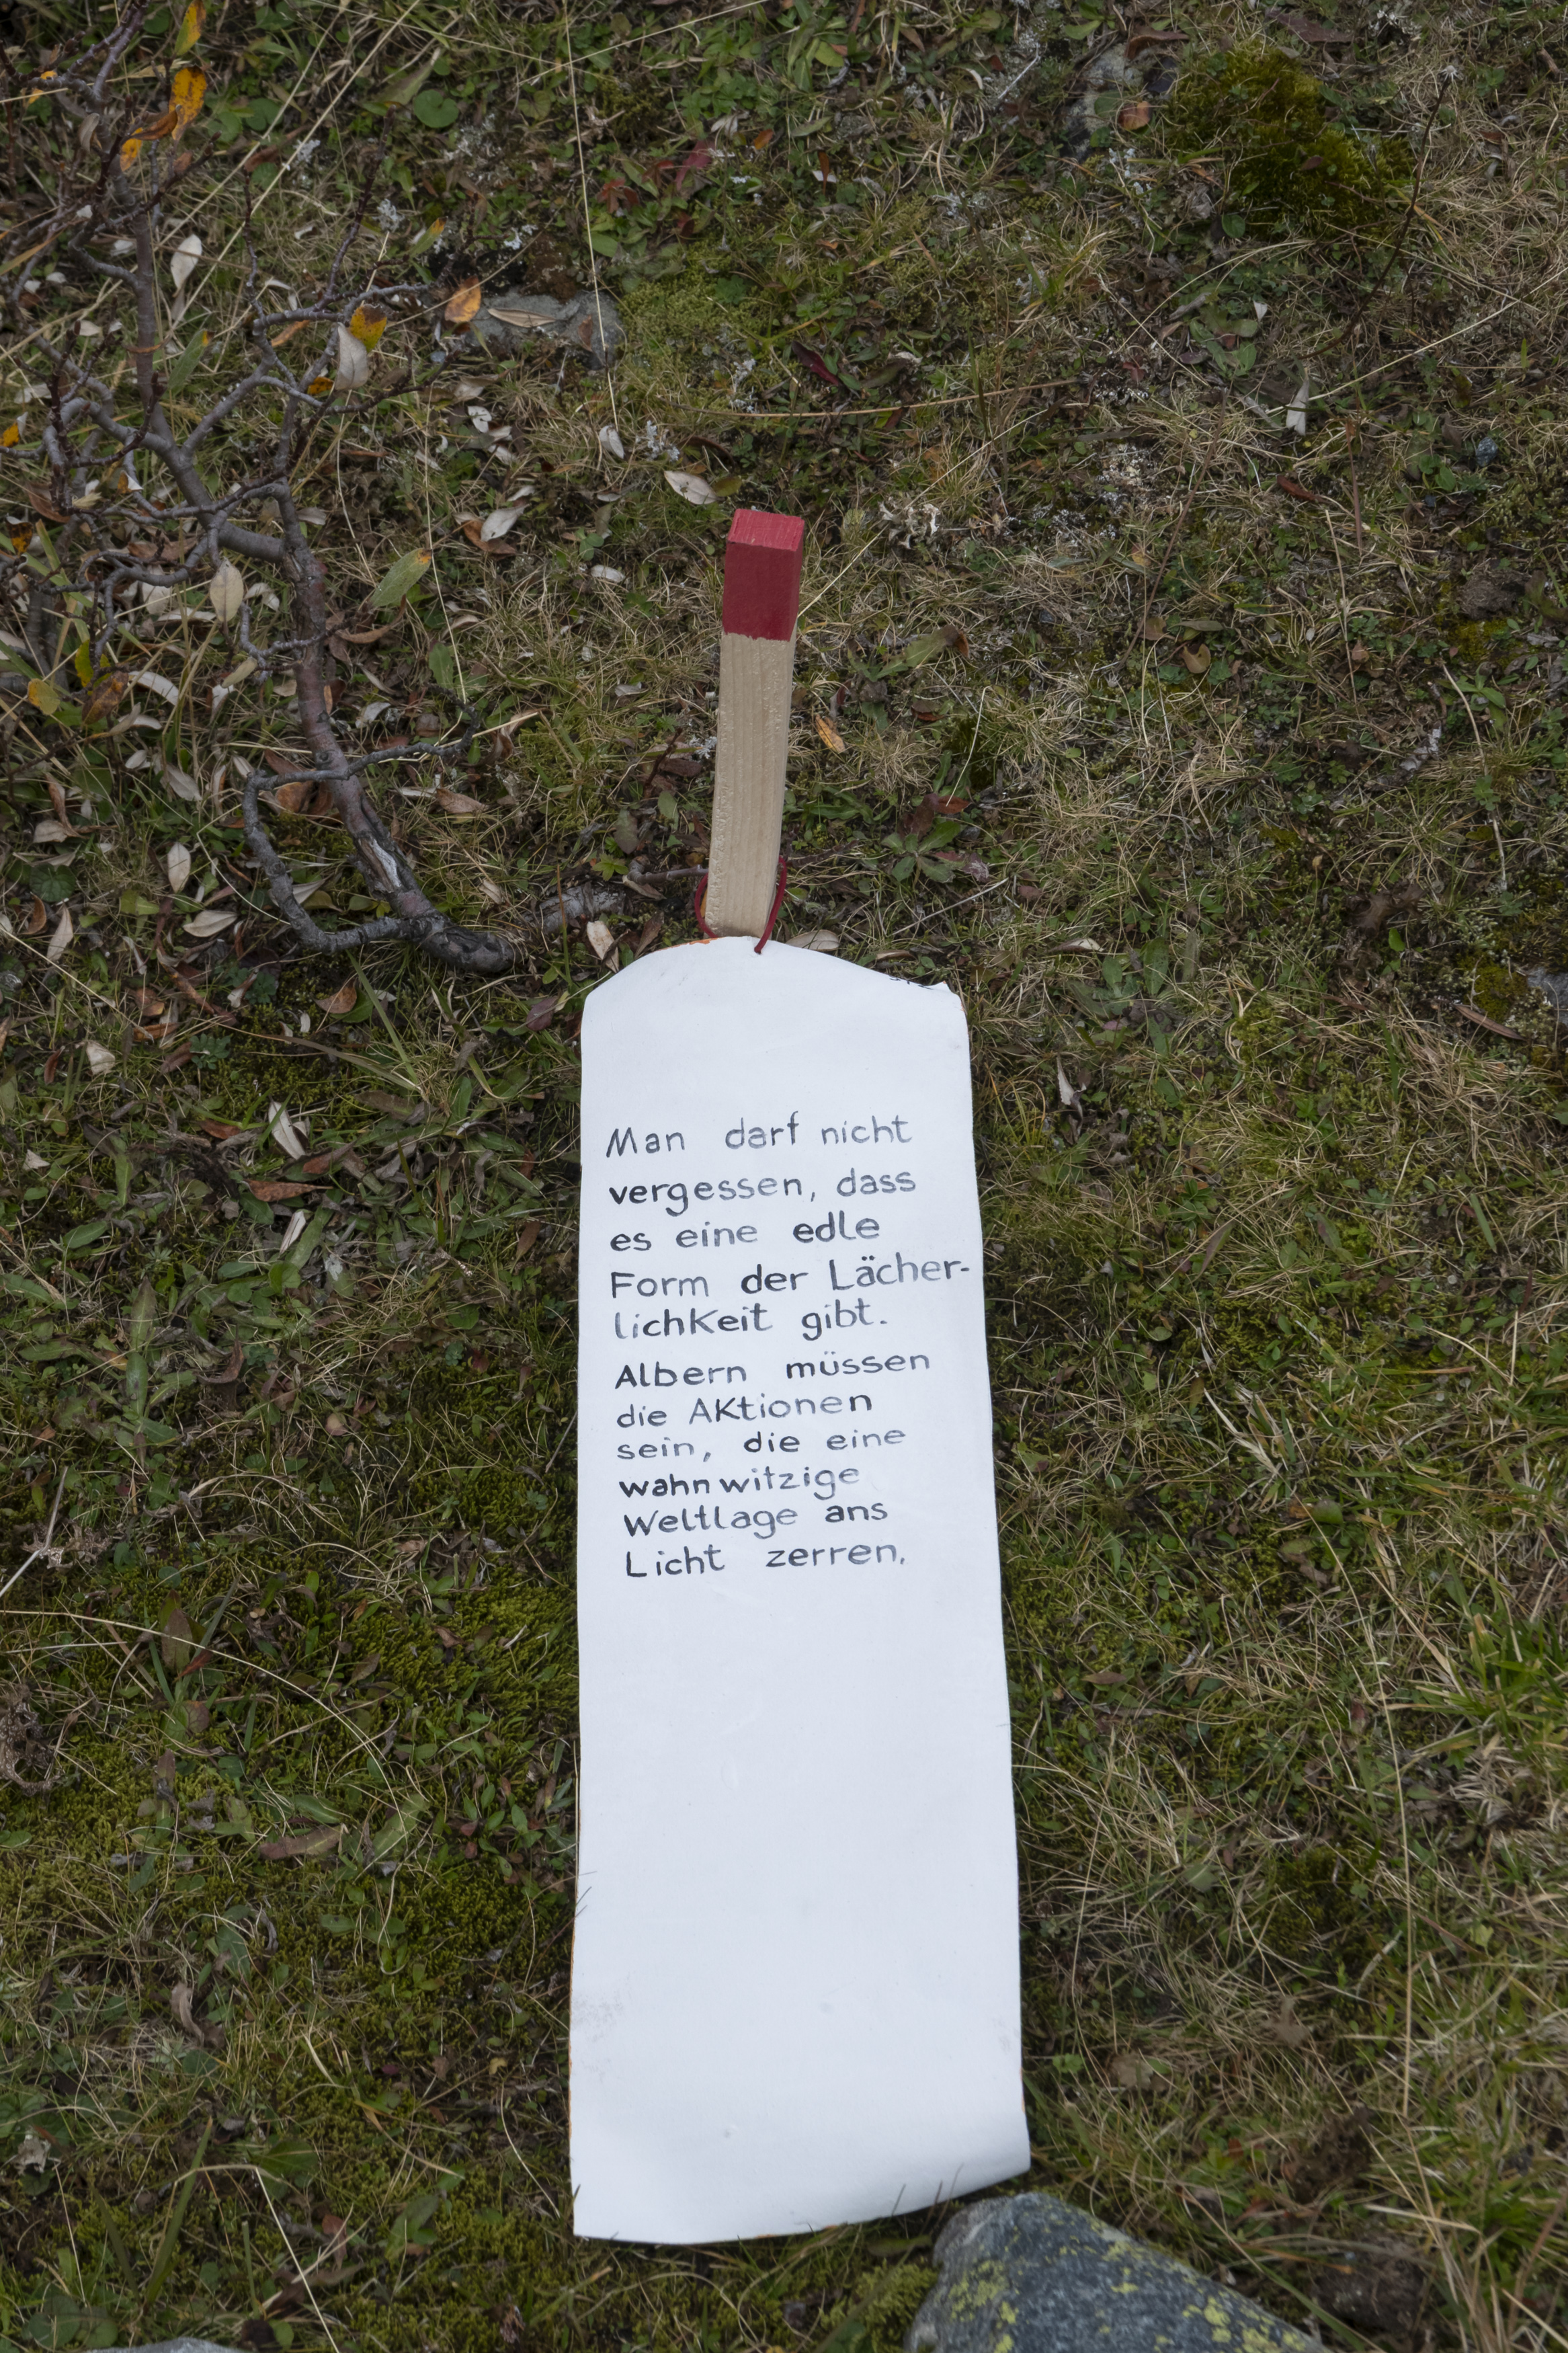 Man darf nicht
vergessen, dass
es eine edle
Form der Lächer-
lichkeit gibt.
Albern müssen
die Aktionen
sein, die eine
wahnwitzige
Weltlage ans
Licht zerren.